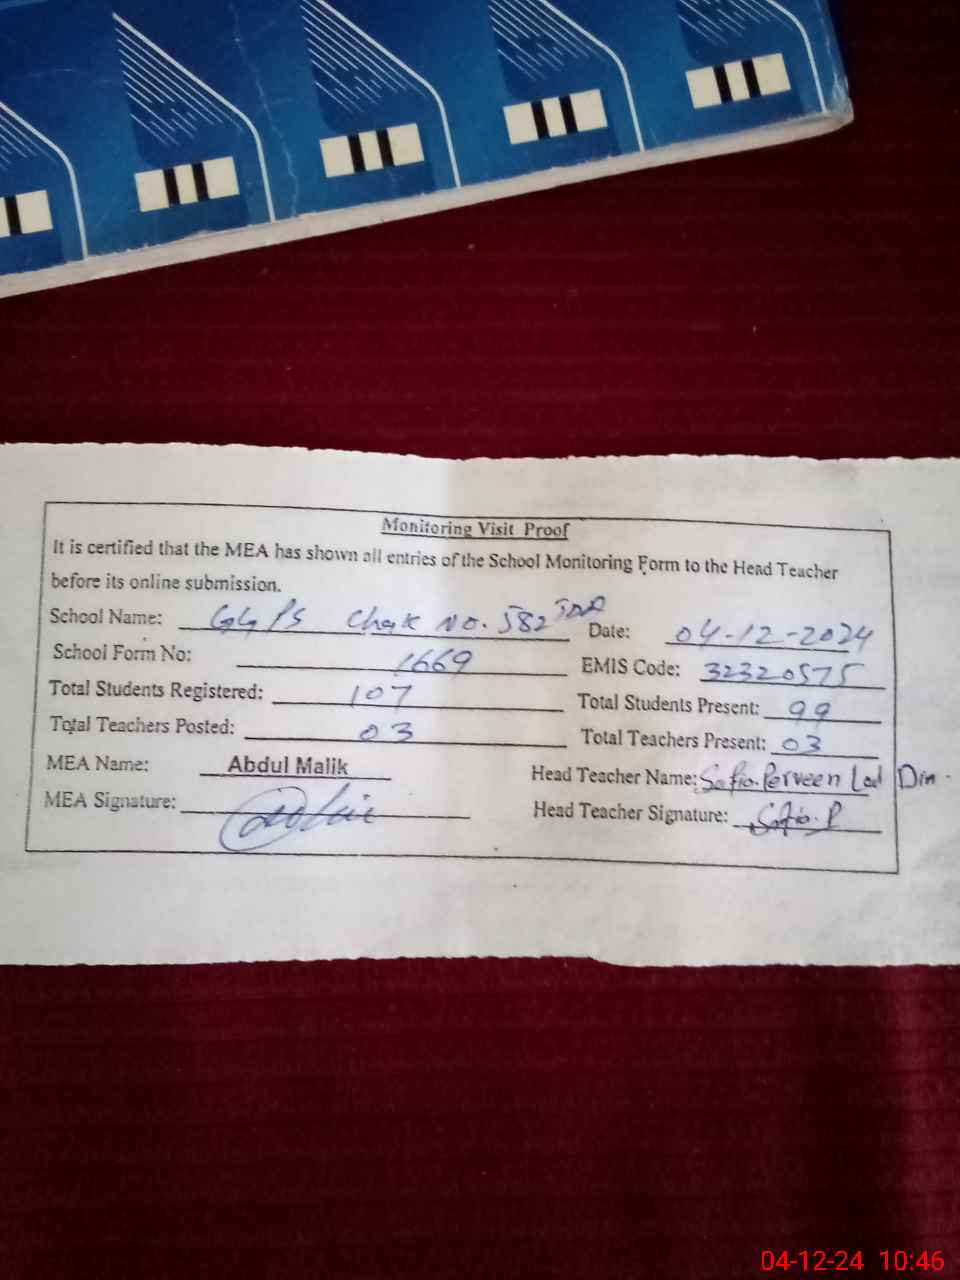 Monitoring Visit Proof
It is certified that the MEA has shown all entries of the School Monitoring Form to the Head Teacher
before its online submission.
School Name: GGPS Chak No. 582 TDA Date: 04-12-2024
School Form No: 1669 EMIS Code: 32320575
Total Students Registered: 107 Total Students Present: 99
Total Teachers Posted: 03 Total Teachers Present: 03
MEA Name: Abdul Malik Head Teacher Name: Safia Perveen Lad Din
MEA Signature: Head Teacher Signature: Safia.P
04-12-24 10:46